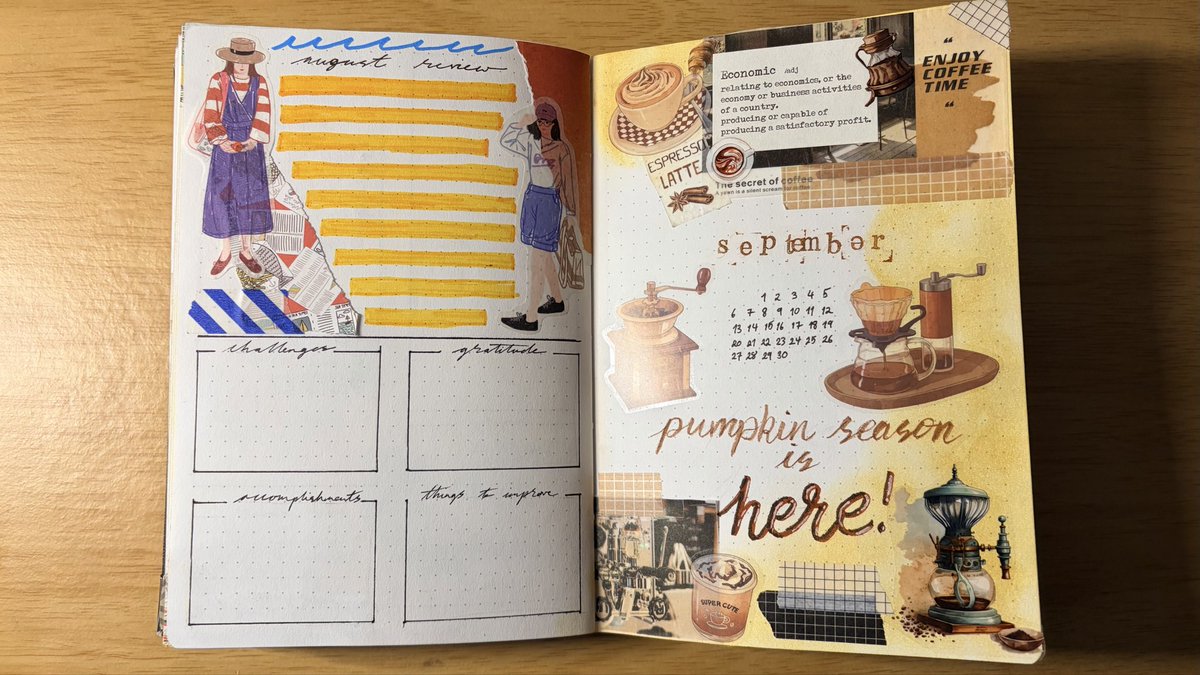 august review
challenges
gratitude
accomplishments
things to improve
Economic /adj
relating to economics, or the
economy or business activities
of a country.
producing or capable of
producing a satisfactory profit.
“
ENJOY
COFFEE
TIME
“
ESPRESSO
LATTE
The secret of coffee
A yawn is a silent scream for coffee
september
1 2 3 4 5
6 7 8 9 10 11 12
13 14 15 16 17 18 19
20 21 22 23 24 25 26
27 28 29 30
pumpkin season
is
here!
SUPER CUTE